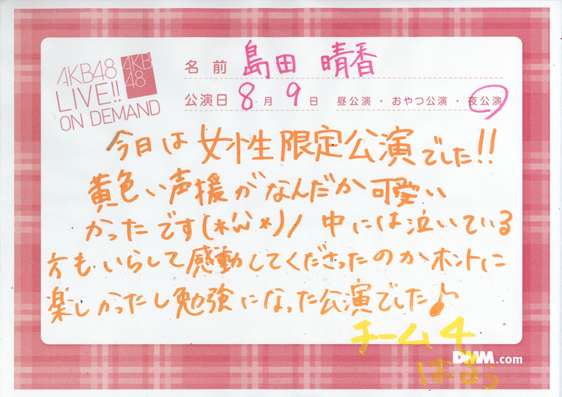 AKB48
LIVE!!
ON DEMAND
AKB
48
名前 島田 晴香
公演日 8月9日 昼公演・おやつ公演・夜公演
今日は女性限定公演でした!!
黄色い声援がなんだか可愛い
かったです(*´ω`*)ノ 中には泣いている
方もいらして感動してくださったのかホントに
楽しかったし勉強になった公演でした♪
チーム4
DMM.com
はるぅ